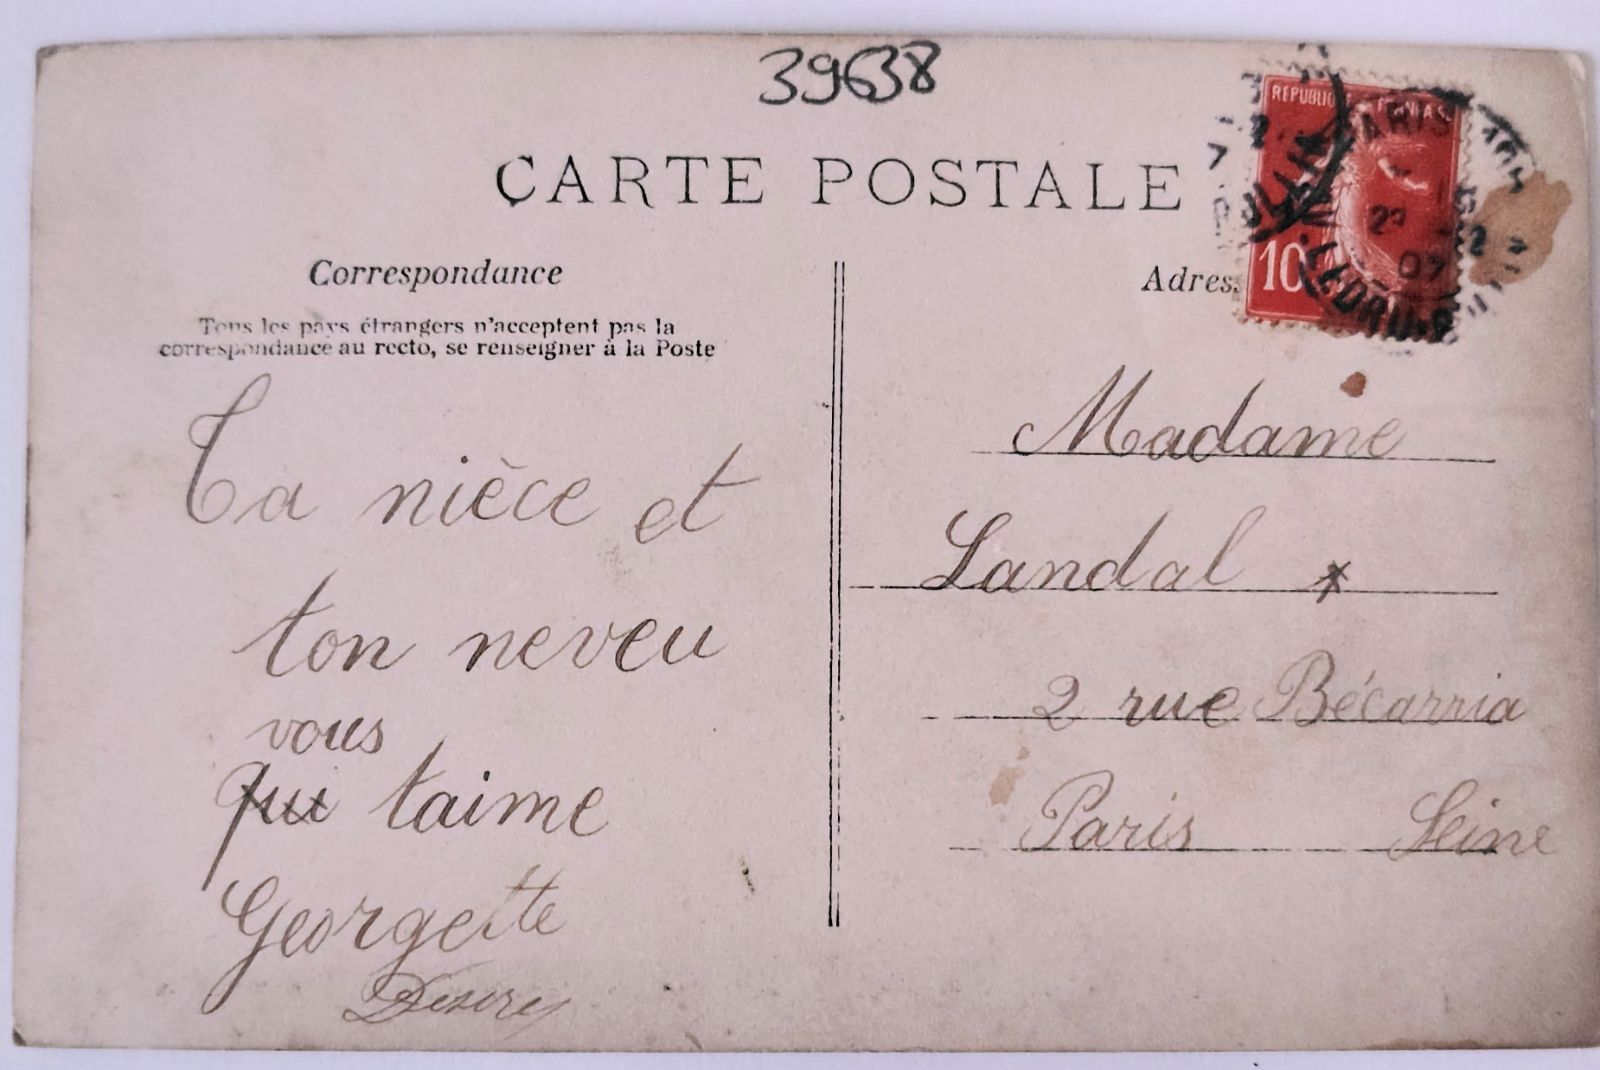 39638
CARTE POSTALE
Correspondance
Tous les pays étrangers n'acceptent pas la
correspondance au recto, se renseigner à la Poste
Ta nièce et
ton neveu
vous
qui taime
Georgette
Adress
REPUBLIQUE FRANCAISE
10
PARIS
22
07
Madame
Landal
2 rue Bécarria
Paris Seine